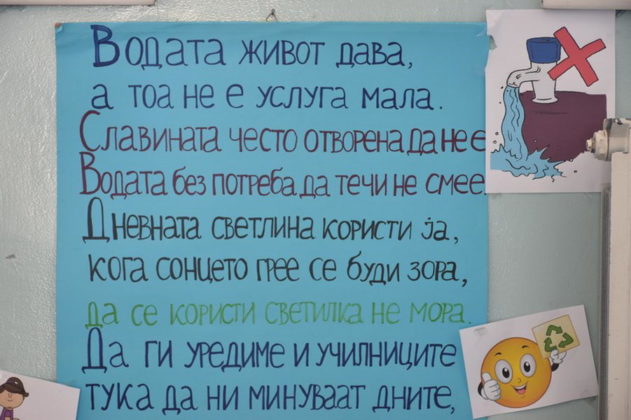 Водата живот дава,
а тоа не е услуга мала.
Славината често отворена да не е
Водата без потреба да течи не смее.
Дневната светлина користи ја,
кога сонцето грее се буди зора,
да се користи светилка не мора.
Да ги уредиме и училниците
тука да ни минуваат дните,